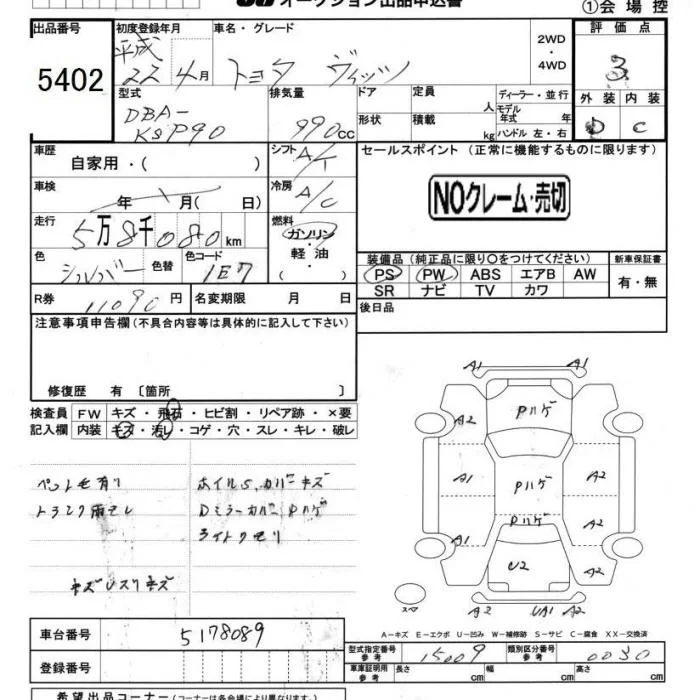 オークション出品申込書
①会場控
出品番号 初度登録年月 車名・グレード 評価点
5402 平成 22 4月 トヨタ ヴィッツ 2WD・4WD 3
型式 排気量 ドア 定員 人 ディーラー・並行 外装 内装
DBA-KSP90 990cc 形状 積載 kg モデル年式 年 ハンドル 左・右 D C
車歴 自家用・( ) シフト A/T セールスポイント (正常に機能するものに限ります)
車検 年 月( 日) 冷房 A/C NOクレーム・売切
走行 5万8千080km 燃料 ガソリン・軽油・( )
色 シルバー 色替 色コード 1E7 装備品(純正品に限り○をつけてください) 新車保証書
PS PW ABS エアB AW 有・無
SR ナビ TV カワ
R券 11090円 名変期限 月 日 後日品
注意事項申告欄(不具合内容等は具体的に記入して下さい)
修復歴 有〔箇所 〕
検査員 FW キズ・飛石・ヒビ割・リペア跡・×要
記入欄 内装 キズ・汚レ・コゲ・穴・スレ・キレ・破レ
ペット毛有り ホイルS、カバーキズ
トランク雨モレ Dミラーカバー Pハゲ
ライトクモリ
キズUスリキズ
A1 A1
A2 Pハゲ
A1 Pハゲ A2
A1 Pハゲ A2
U2 A2
スペア A2 UA1 A2
A-キズ E-エクボ U-凹み W-補修跡 S-サビ C-腐食 XX-交換済
車台番号 5178089
型式指定番号 参考 15009 類別区分番号 参考 0030
登録番号 車庫証明用 参考 長さ cm 幅 cm 高さ cm
希望出品コーナー(コーナーは各会場により異なります)